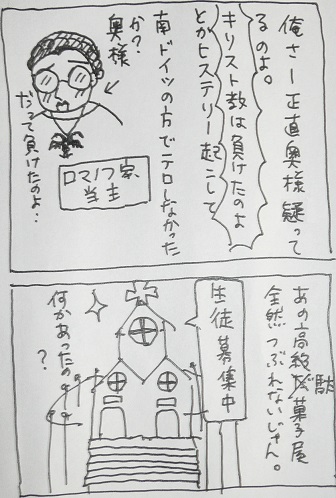 俺さー正直奥様疑って
るのよ。
キリスト数は負けたのよ
とかヒステリー起こして
南ドイツの方でテロしなかった
か?
奥様
だって負けたのよ‥
ロマノフ家
当主
あの高級駄菓子屋
全然つぶれないじゃん。
生徒募集中
何かあったの
?